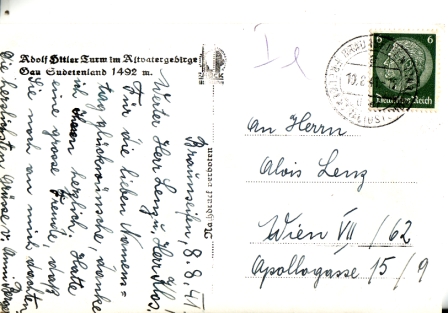 Adolf Hitler Turm im Altvatergebirge
Gau Sudetenland 1492 m.
Braunseifen, 8.8.41
Werter Herr Lenz u. Herr
Für die lieben Namens=
tagsglückwünsche, danke
herzlich. Hatte
eine grosse Freude, daß
Sie noch an mich dachten.
Die herzlichsten Grüsse v.
Nachdruck verboten
I
6 6
Deutsches Reich
An Herrn
Alois Lenz
Wien VII /62
Apollogasse 15/9